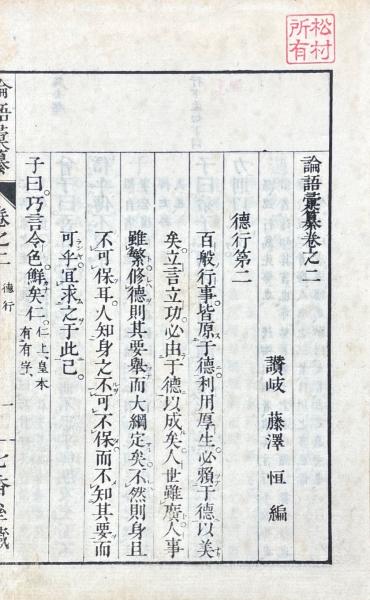 松村
所有
論語彙纂卷之二
讃岐 藤澤 恒 編
德行第二
百般行事皆原于德利用厚生必賴于德以美
矣立言立功必由于德以成矣人世雖廣人事
雖繁修德則其要擧而大綱定矣不然則身且
不可保耳人知身之不可不保而不知其要而
可乎宜求之于此已
子曰巧言令色鮮矣仁 仁上皇本有有字
論語彙纂 卷之二 德行 一